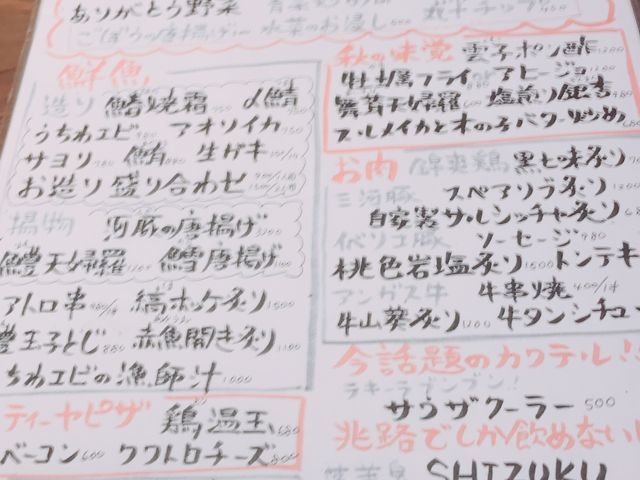 ありがとう野菜
ごぼうの唐揚げ 水菜のお浸し
鮮魚
造り 鰆焼霜 〆鯖
うちわエビ 980 アオリイカ
サヨリ 鮪 880 生ガキ
お造り盛り合わせ
揚物 河豚の唐揚げ 1200
鱧天婦羅 1200 鱈唐揚げ
アトロ串 縞ホッケ炙り 1500
玉子とじ 880 赤魚開き炙り 1100
ちわエビの漁師汁 1000
ティーヤピザ 鶏温玉 680
ベーコン 600 クワトロチーズ 800
秋の味覚 雲子ポン酢 1200
牡蠣フライ 880 アヒージョ
舞茸天婦羅 600 塩煎り銀杏
スルメイカときのこバター炒め
お肉 錦爽鶏 黒七味炙り
三河豚 スペアリブ炙り 1200
自家製サルシッチャ炙り
イベリコ豚 ソーセージ 980
桃色岩塩炙り 1500 トンテキ
アングス牛 牛串焼
牛山葵炙り 1200 牛タンシチュー
今話題のカクテル!
サウザクーラー 500
兆路でしか飲めない
SHIZUKU